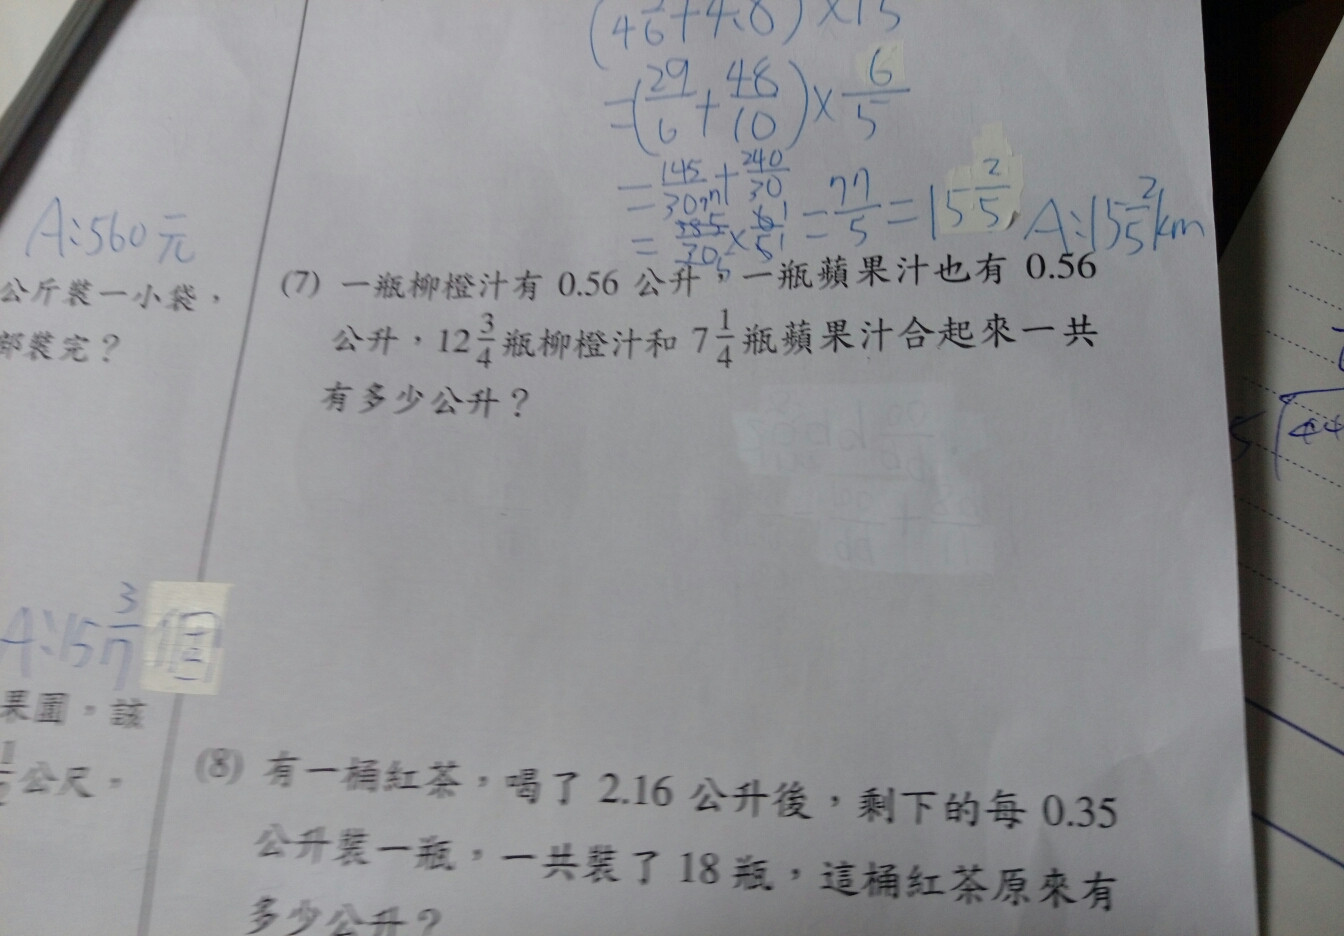 (4 1/6 + 4.8) × 1 1/5
= (29/6 + 48/10) × 6/5
= 145/30 + 240/30
= 385/30 × 6/5 = 77/5 = 15 2/5 A:15 2/5 km
A:560元
公斤裝一小袋，
部裝完？
(7) 一瓶柳橙汁有 0.56 公升，一瓶蘋果汁也有 0.56
公升，12 3/4 瓶柳橙汁和 7 1/4 瓶蘋果汁合起來一共
有多少公升？
A:15 3/7 個
果園，該
1/2 公尺，
(8) 有一桶紅茶，喝了 2.16 公升後，剩下的每 0.35
公升裝一瓶，一共裝了 18 瓶，這桶紅茶原來有
多少公升？